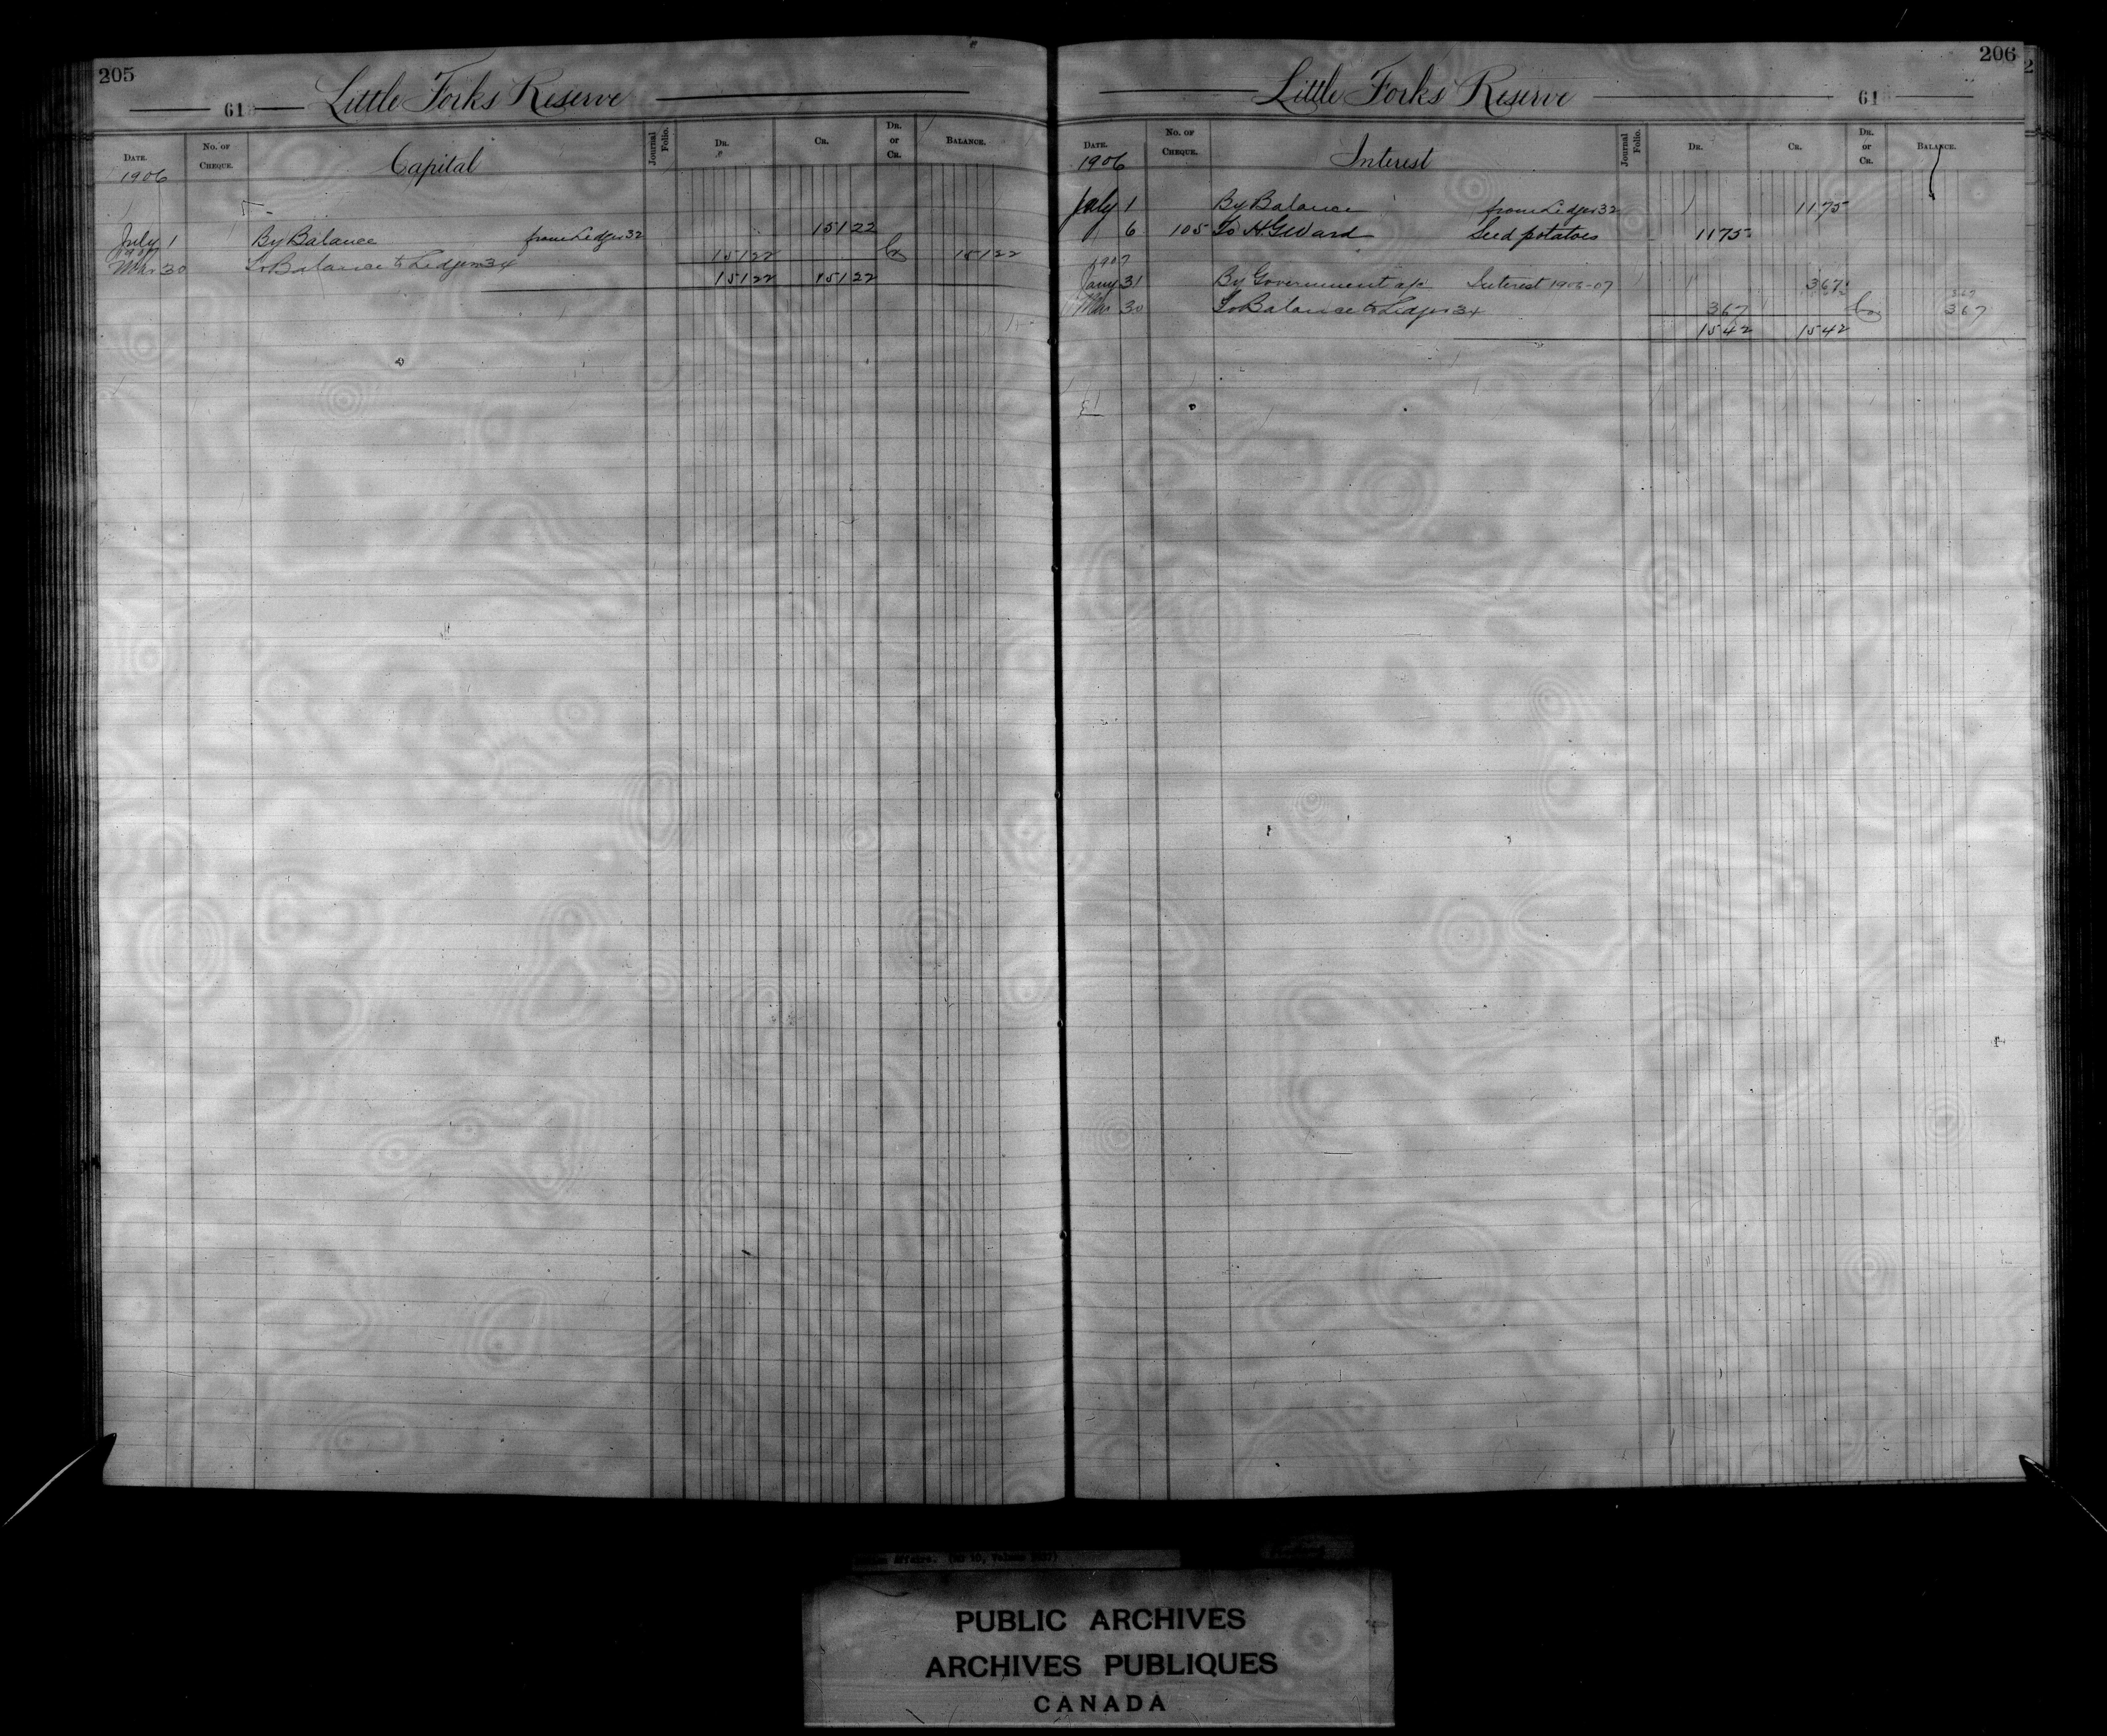 205
61 Little Forks Reserve
DATE. No. OF CHEQUE. Capital Journal Folio. DR. CR. DR. or CR. BALANCE.
1906
July 1 By Balance from Ledger 32 151 22
1907
Mar 30 To Balance to Ledger 34 151 22 Cr 151 22
151 22 151 22
206
Little Forks Reserve 61
DATE. No. OF CHEQUE. Interest Journal Folio. DR. CR. DR. or CR. BALANCE.
1906
July 1 By Balance from Ledger 32 11 75
6 105 To H G Ward Seed potatoes 11 75
1907
Jany 31 By Government a/c Interest 1906-07 3 67
Mar 30 To Balance to Ledger 34 3 67 Cr 3 67
15 42 15 42
Affairs. (RG 10, Volume
PUBLIC ARCHIVES
ARCHIVES PUBLIQUES
CANADA